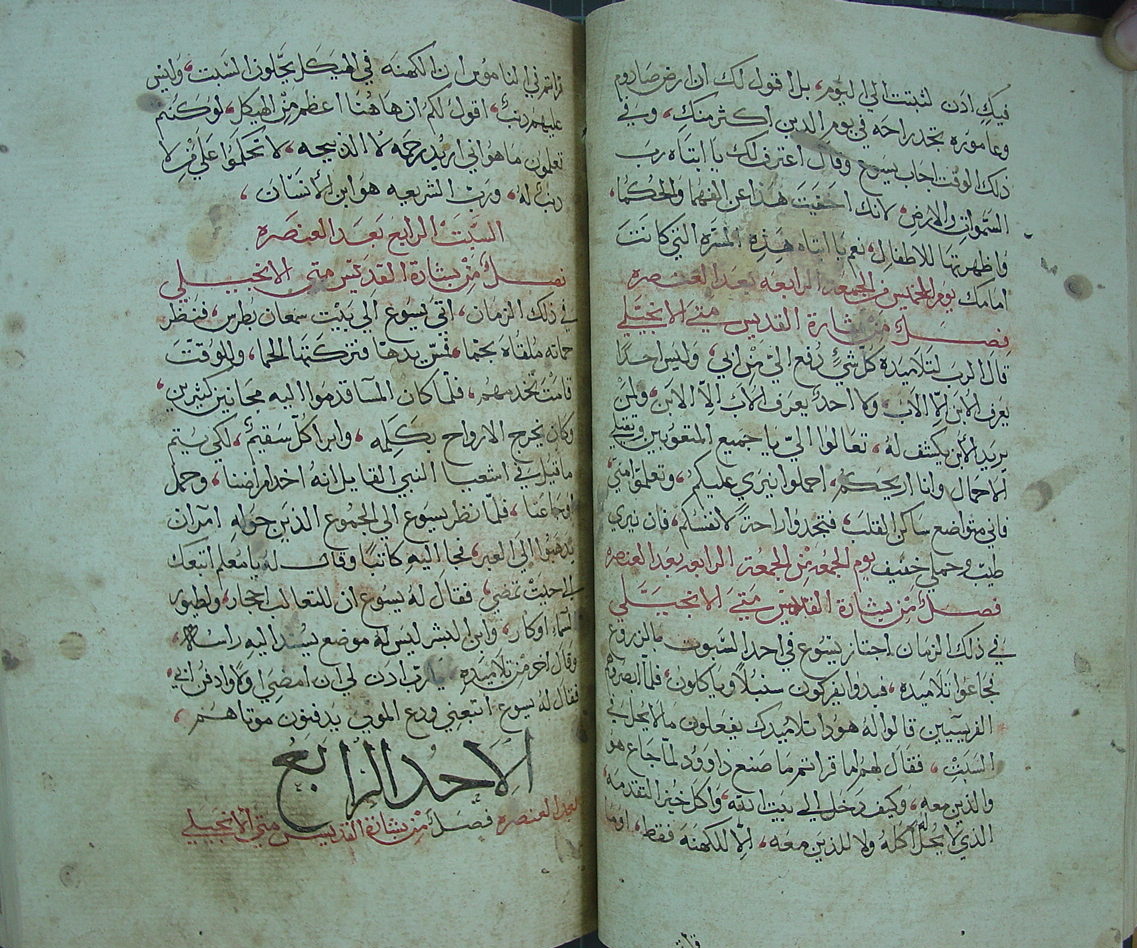 فيكِ اذن لثبتت الى اليوم، بل اقول لك ان ارض صاروم
وعاموره تجد راحه في يوم الدين أكثر منكِ، وفي
ذلك الوقت اجاب يسوع وقال اعترف لك يا ابتاه رب
السموات والارض، لانك اخفيت هذا عن الفهما والحكما،
واظهرتها للاطفال، نعم يا ابتاه هذه المسره التي كانت
امامك يوم الخميس من الجمعه الرابعه بعد العنصره
فصل من بشارة القديس متى الانجيلي
قال الرب لتلاميذه كل شي دفع اليّ من ابي، وليس احدًا
يعرف الابن الّا الاب، ولا احدٌ يعرف الاب الّا الابن، ولمن
يريد الابن يكشف له، تعالوا اليّ يا جميع المتعوبين وثقيلي
الاحمال وانا اريحكم، احملوا نيري عليكم، وتعلموا مني
فاني متواضع ساكن القلب، فتجدوا راحةً لانفسكم، فان نيري
طيب وحملي خفيف يوم الجمعه من الجمعة الرابعه بعد العنصره
فصل من بشارة القديس متى الانجيلي
في ذلك الزمان اجتاز يسوع في احد السبوت مالزروع
فجاعوا تلاميذه، فبدوا يفركون سنبلًا وياكلون، فلما ابصروه
الفريسيين قالوا له هوذا تلاميذك يفعلون ما لا يحل في
السبت، فقال لهم اما قراتم ما صنع داوود لما جاع هو
والذين معه، وكيف دخل الى بيت الله، واكل خبز التقدمه،
الذي لا يحل له أكله ولا للذين معه، الّا للكهنه فقط، اوما
قراتم في الناموس ان الكهنه في الهيكل يحلون السبت، وليس
عليهم ذنب، اقول لكم ان هاهنا اعظم من الهيكل، لو كنتم
تعلمون ما هو اني اريد رحمه لا الذبيحه، لا تحكموا على من لا
ذنب له، ورب الشريعه هو ابن الانسان،
السبت الرابع بعد العنصره
فصل من بشارة القديس متى الانجيلي
في ذلك الزمان، اتى يسوع الى بيت سمعان بطرس، فنظر
حماته ملقاه بحما، فمس يدها فتركتها الحما، وللوقت
قامت تخدمهم، فلما كان المسا قدموا اليه مجانين كثيرين،
وكان يخرج الارواح بكلمه، وابرا كل سقيم، لكي يتم
ما قيل في اشعيا النبي القايل انه اخذ امراضنا، وحمل
اوجاعنا، فلما نظر يسوع الى الجموع الذين حوله امر ان
يذهبوا الى العبر، فجا اليه كاتبًا وقال له يا معلم اتبعك
الى حيث تمضي، فقال له يسوع ان للثعالب احجار، ولطيور
السماء اوكار، وابن البشر ليس له موضع يسند اليه راسه،
وقال اخر من تلاميذه يا رب اذن لي ان امضي اولًا وادفن ابي،
فقال له يسوع اتبعني ودع الموتى يدفنون موتاهم،
الاحد الرابع
بعد العنصره فصل من بشارة القديس متى الانجيلي